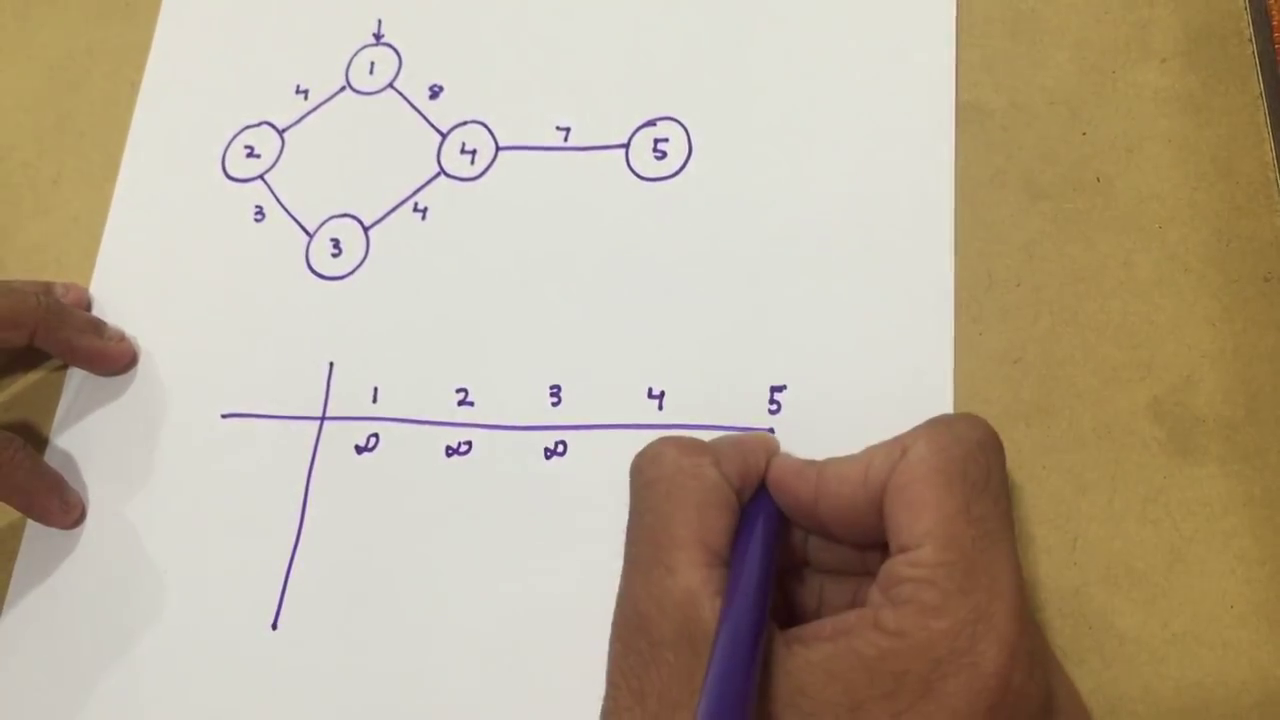 1
4 8
2 4 7 5
3 4
3
1 2 3 4 5
∞ ∞ ∞